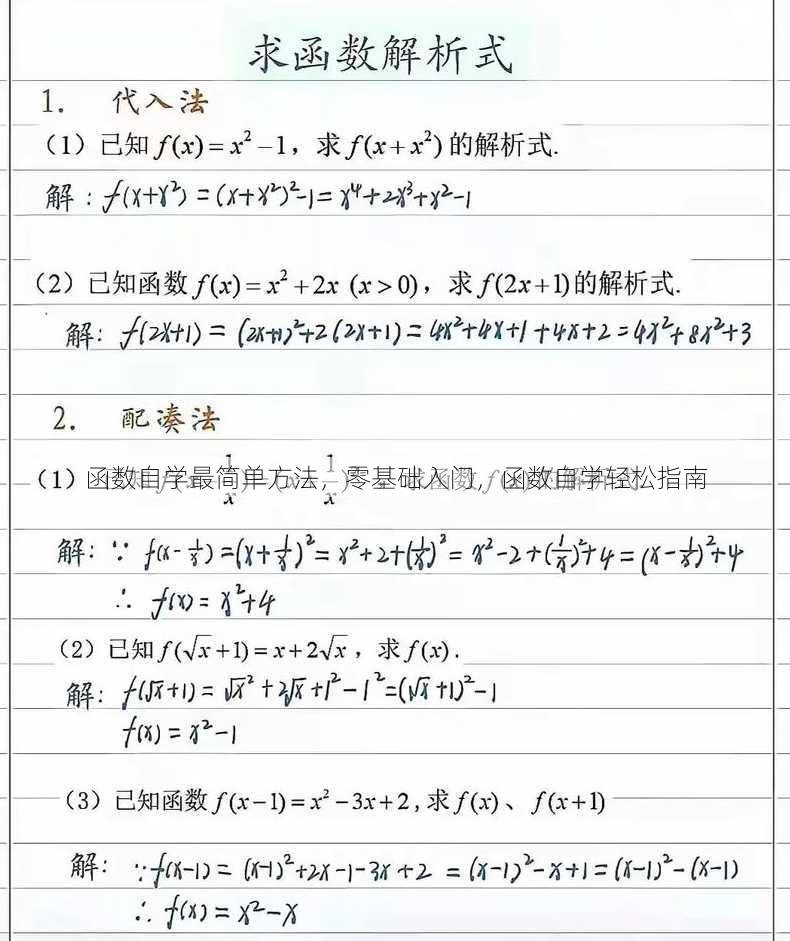 求函数解析式
1. 代入法
（1）已知 f(x) = x² −1，求 f(x + x²) 的解析式.
解：f(x+x²) = (x+x²)²-1 = x⁴+2x³+x²-1
（2）已知函数 f(x) = x² + 2x (x > 0)，求 f(2x+1)的解析式.
解：f(2x+1) = (2x+1)²+2(2x+1) = 4x²+4x+1+4x+2 = 4x²+8x²+3
2. 配凑法
（1）
函数自学最简单方法，零基础入门，函数自学轻松指南
解：∵ f(x-1/x) = (x+1/x)² = x²+2+(1/x)² = x²-2+(1/x)²+4 = (x-1/x)²+4
∴ f(x) = x²+4
（2）已知 f(√x +1) = x + 2√x，求 f(x).
解：f(√x+1) = √x²+2√x+1²-1² = (√x+1)²-1
f(x) = x²-1
（3）已知函数 f(x−1) = x² −3x + 2 , 求 f(x) 、 f(x+1)
解：∵f(x-1) = (x-1)²+2x-1-3x+2 = (x-1)²-x+1 = (x-1)²-(x-1)
∴ f(x) = x²-x